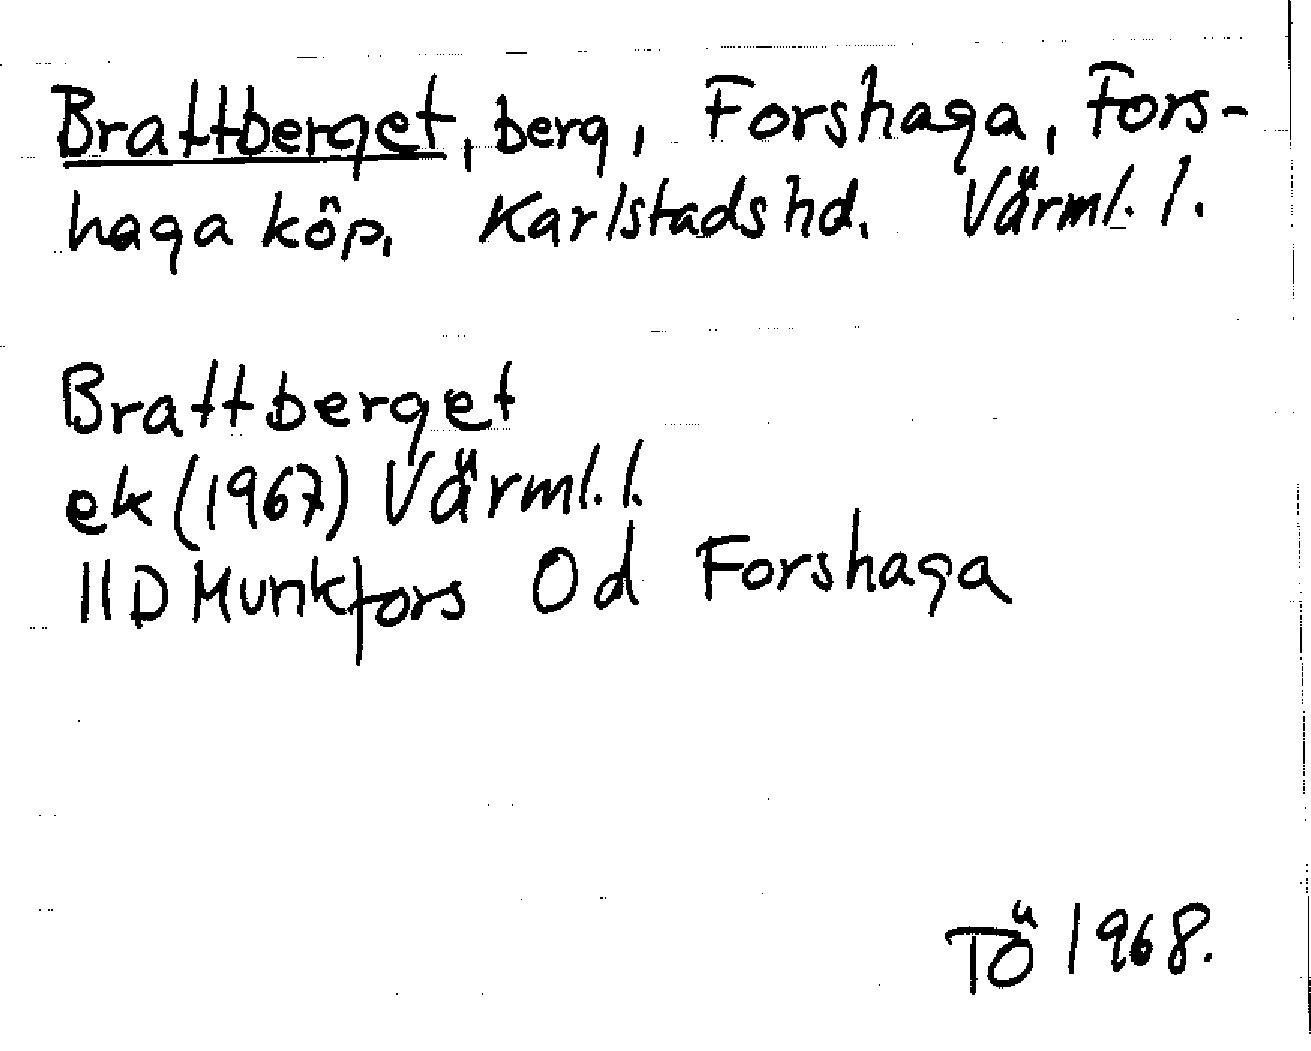 Brattberget, berg, Forshaga, Fors-
haga köp. Karlstads hd. Värml. l.
Brattberget
ek (1967) Värml. l.
11D Munkfors 0d Forshaga
TÖ 1968.